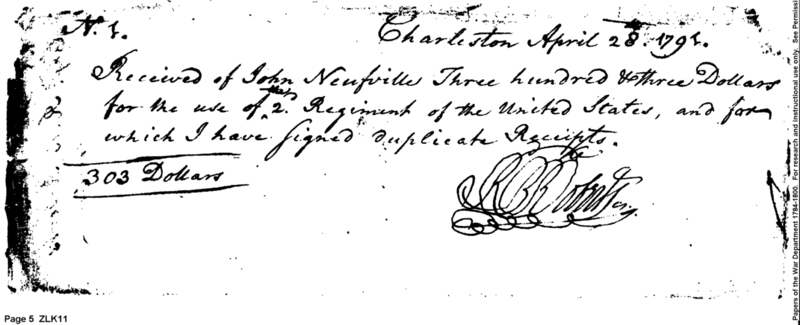 N. 1.
Charleston April 28. 1791.
Received of John Neufville Three hundred & three Dollars
for the use of the 2. Regiment of the United States, and for
which I have signed duplicate Receipts.
303 Dollars
Page 5 ZLK11
Papers of the War Department 1784-1800. For research and instructional use only. See Permissi